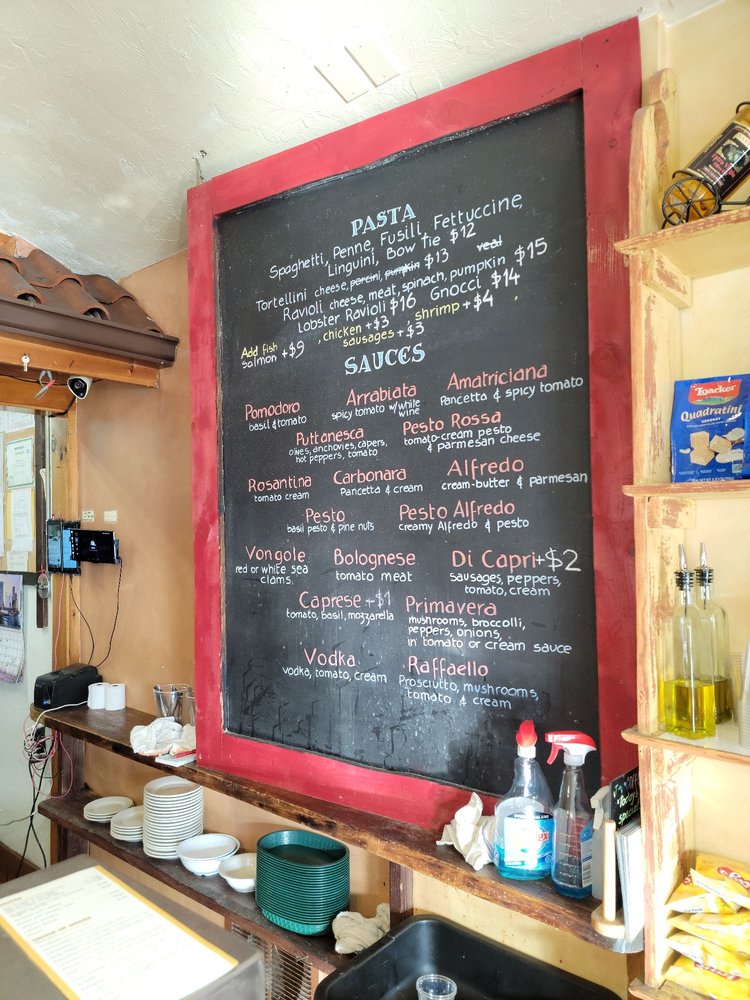 PASTA
Spaghetti, Penne, Fusili, Fettuccine,
Linguini, Bow Tie $12
Tortellini cheese, porcini, pumpkin $13 veal
Ravioli cheese, meat, spinach, pumpkin $15
Lobster Ravioli $16 Gnocci $14
Add fish
salmon +$9
, chicken +$3 , shrimp +$4 ,
sausages +$3
SAUCES
Pomodoro
basil & tomato
Arrabiata
spicy tomato w/white
wine
Amatriciana
Pancetta & spicy tomato
Puttanesca
olives, anchovies, capers,
hot peppers, tomato
Pesto Rossa
tomato-cream pesto
& parmesan cheese
Rosantina
tomato cream
Carbonara
Pancetta & cream
Alfredo
cream-butter & parmesan
Pesto
basil pesto & pine nuts
Pesto Alfredo
creamy Alfredo & pesto
Vongole
red or white sea
clams,
Bolognese
tomato meat
Di Capri +$2
sausages, peppers,
tomato, cream
Caprese +$1
tomato, basil, mozzarella
Primavera
mushrooms, broccolli,
peppers, onions,
in tomato or cream sauce
Vodka
vodka, tomato, cream
Raffaello
Prosciutto, mushrooms,
tomato & cream
Loacker
Quadratini
COCONUT
Today's